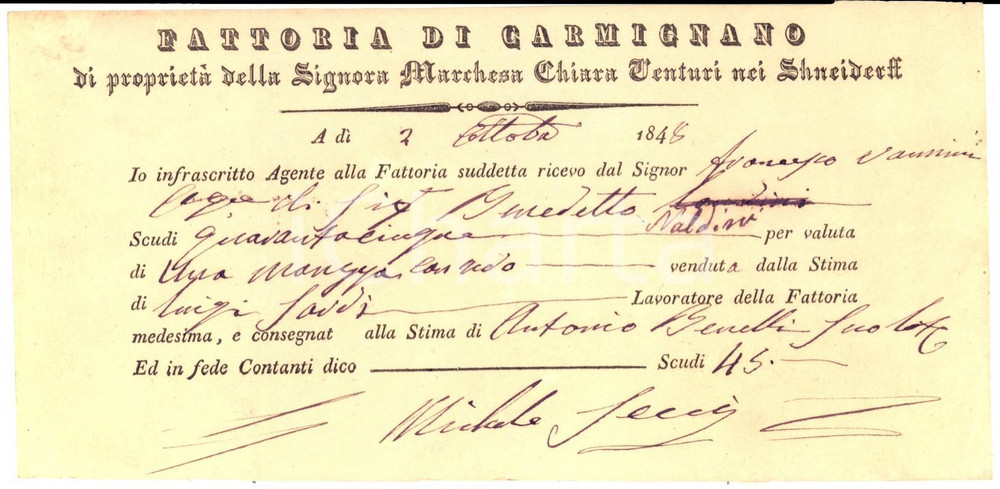 FATTORIA DI CARMIGNANO
di proprietà della Signora Marchesa Chiara Venturi nei Shneiderff
A dì 2 Ottobr 1848
Io infrascritto Agente alla Fattoria suddetta ricevo dal Signor Francesco Vannini
di Sig Benedetto
Naldini
Scudi quarantacinque per valuta
di Una venduta dalla Stima
di Luigi Lavoratore della Fattoria
medesima, e consegnat alla Stima di Antonio Benelli
Ed in fede Contanti dico Scudi 45.
Michele